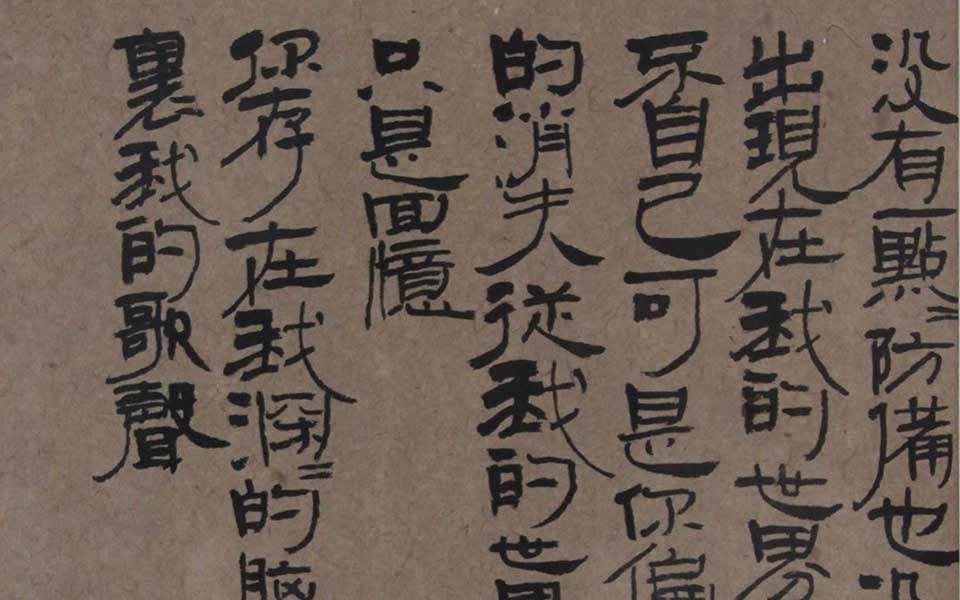 没有一點〻防備也
出現在我的世界
不自己可是你偏
的消失從我的世界
只是回憶
你存在我深〻的腦
裏我的歌聲